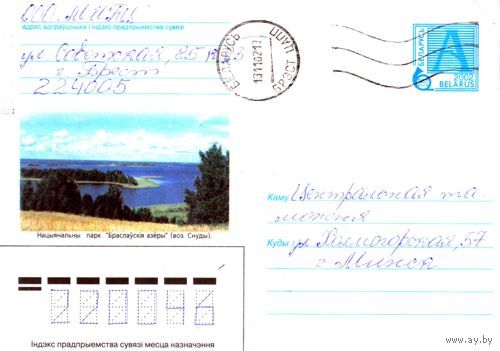 ООО "МИТЦ"
адрас адпраўшчыка і індэкс прадпрыемства сувязі
ул. Советская, 85
г. Брест
224005
БЕЛАРУСЬ
ПАШП
131102 17
БРЭСТ
БЕЛАРУСЬ
А
2002
BELARUS
Нацыянальны парк "Браслаўскія азёры" (воз. Снуды).
Каму Центральная та-
можня
Куды ул. Холмогорская, 57
г. Минск
220046
Індэкс прадпрыемства сувязі месца назначэння
www.ay.by